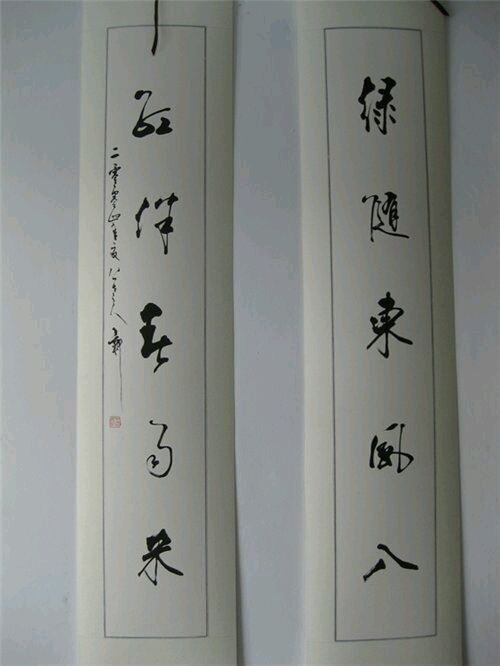 绿随东风入
红伴春雨来
二零零四年夏